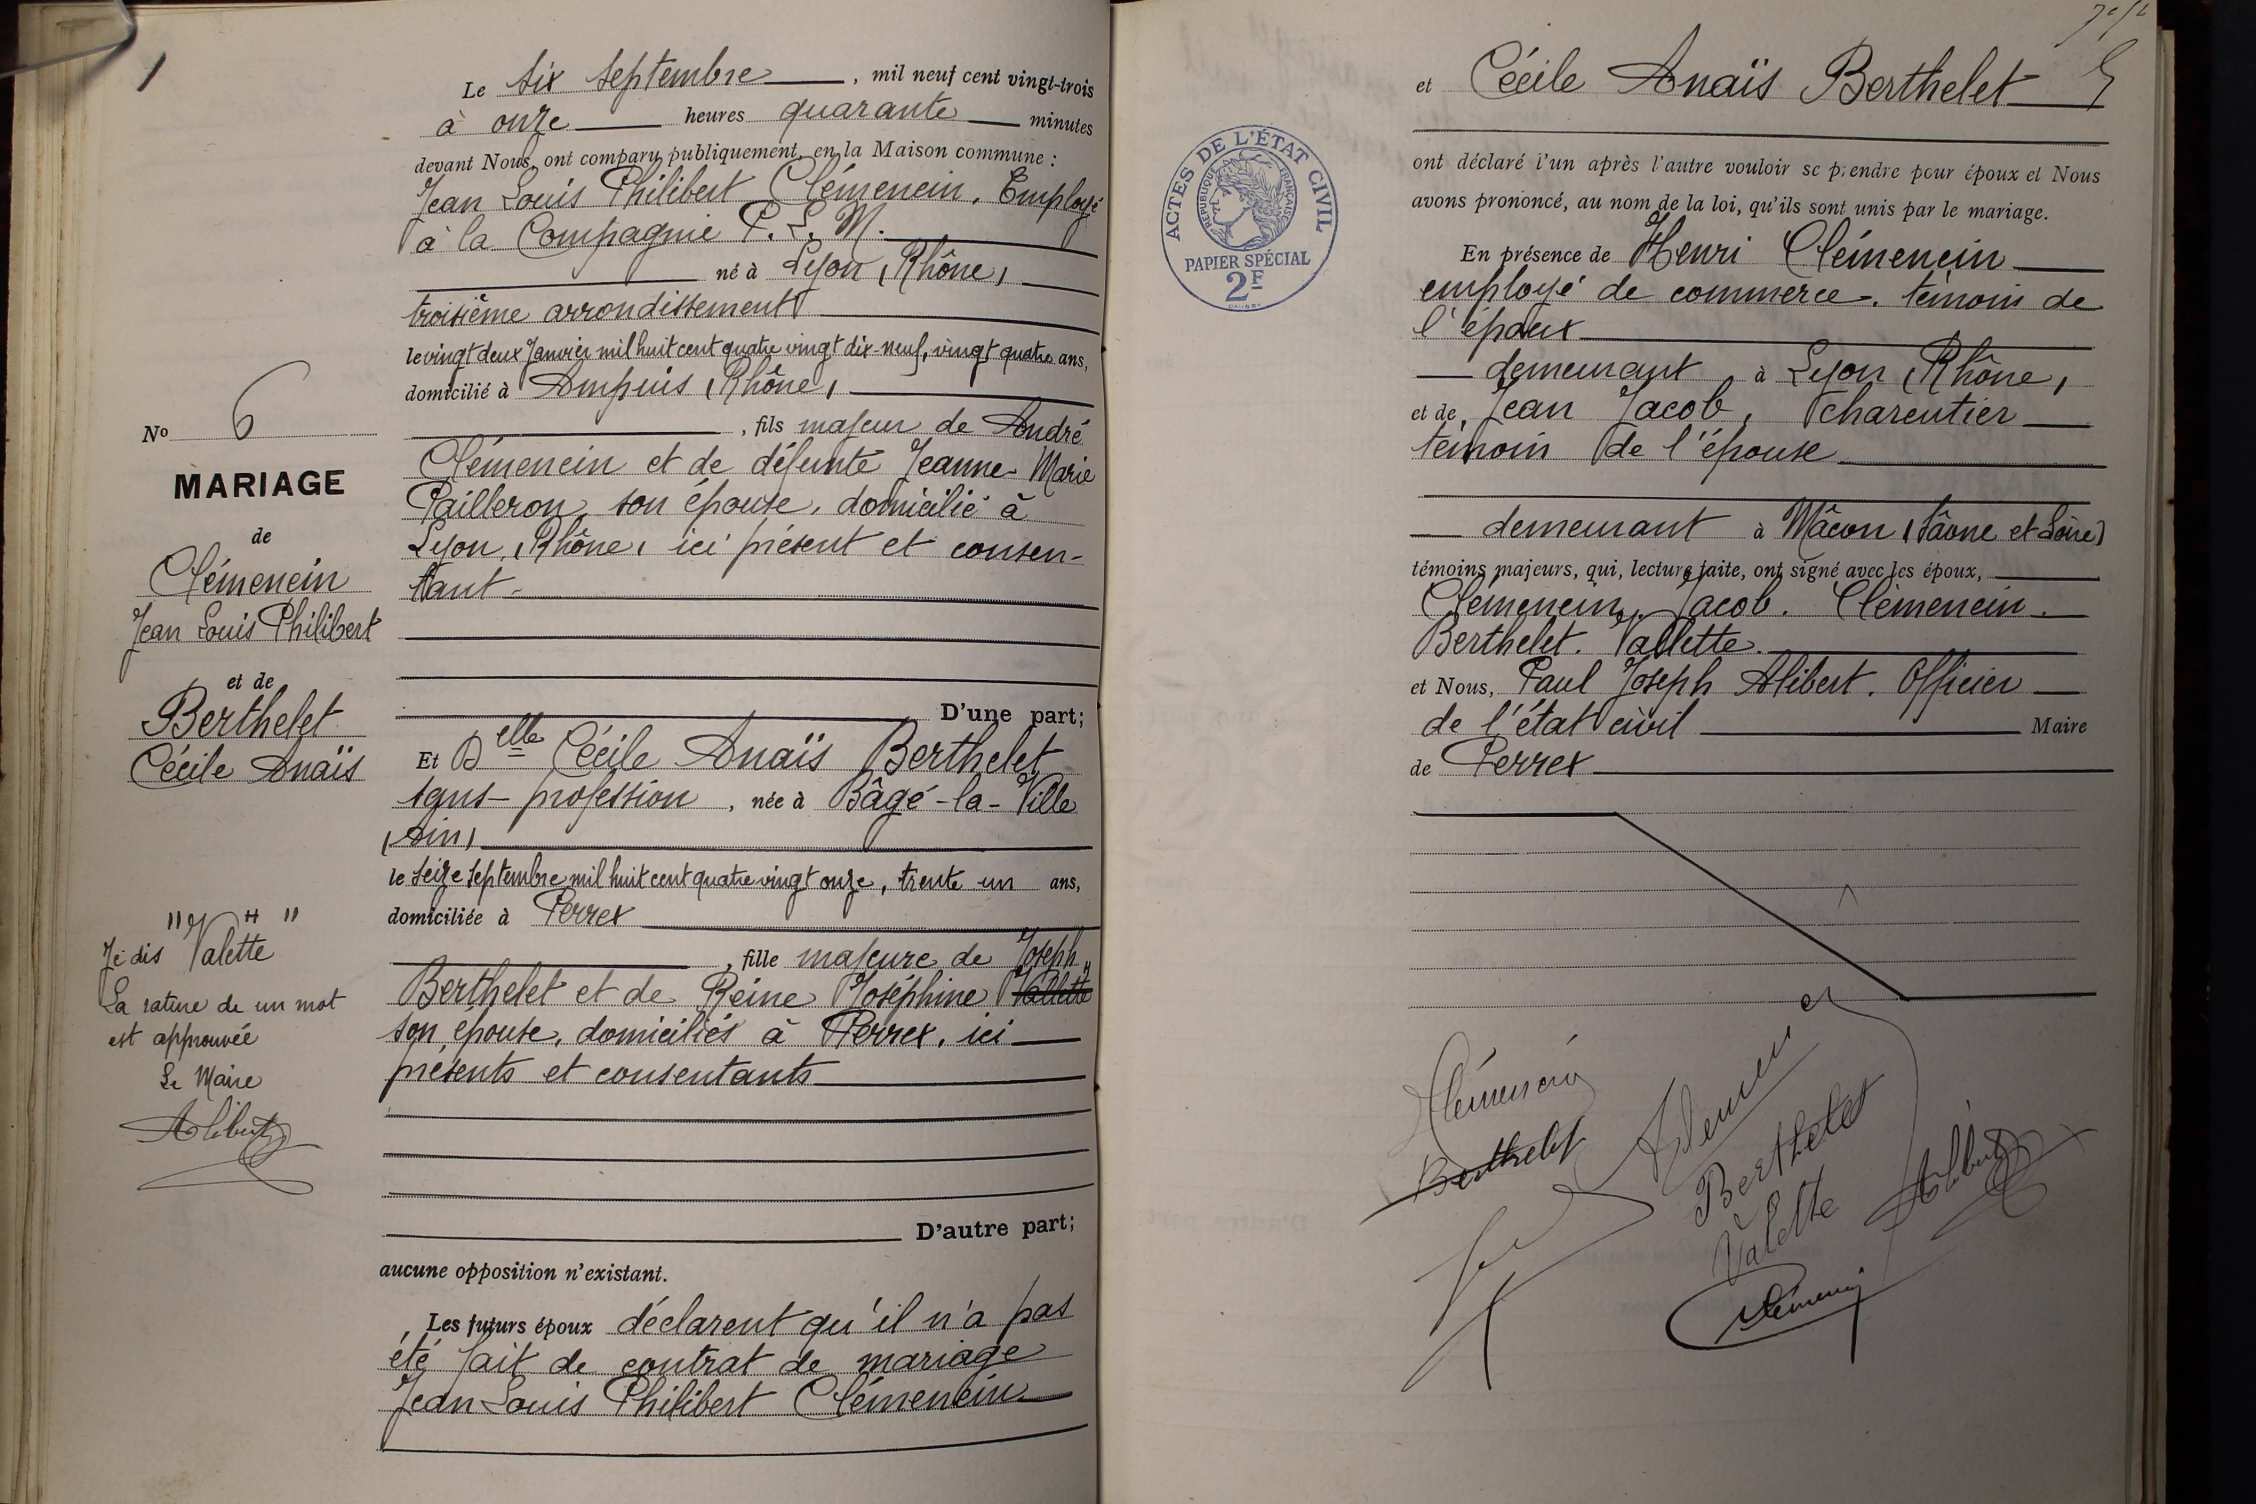 Le six septembre, mil neuf cent vingt-trois
à onze heures quarante minutes
devant Nous, ont comparu publiquement, en la Maison commune :
Jean Louis Philibert Clémencin, Employé
à la Compagnie P. L. M.
né à Lyon (Rhône)
troisième arrondissement
le vingt deux Janvier mil huit cent quatre vingt dix-neuf, vingt quatre ans,
domicilié à Ampuis (Rhône)
, fils majeur de André
Clémencin et de défunte Jeanne Marie
Pailleron, son épouse, domicilié à
Lyon, (Rhône) ici présent et consen-
tant -
D'une part;
Et Delle Cécile Anaïs Berthelet
sans profession, née à Bâgé-la-Ville
(Ain)
le seize septembre mil huit cent quatre vingt onze, trente un ans,
domiciliée à Perrex
, fille majeure de Joseph
Berthelet et de Reine Joséphine Vallette
son épouse, domiciliés à Perrex, ici
présents et consentants
D'autre part;
aucune opposition n'existant.
Les futurs époux déclarent qu'il n'a pas
été fait de contrat de mariage
Jean Louis Philibert Clémencin
No 6
MARIAGE
de
Clémencin
Jean Louis Philibert
et de
Berthelet
Cécile Anaïs
Je dis "Valette"
La rature de un mot
est approuvée
Le Maire
Alibert
et Cécile Anaïs Berthelet
ont déclaré l'un après l'autre vouloir se prendre pour époux et Nous
avons prononcé, au nom de la loi, qu'ils sont unis par le mariage.
En présence de Henri Clémencin
employé de commerce. témoin de
l'époux
demeurant à Lyon (Rhône)
et de Jean Jacob, charentier
témoin de l'épouse
demeurant à Mâcon (Saône et Loire)
témoins majeurs, qui, lecture faite, ont signé avec les époux,
Clémencin. Jacob. Clémencin.
Berthelet. Vallette.
et Nous, Paul Joseph Alibert. Officier
de l'état civil Maire
de Perrex
ACTES DE L'ÉTAT CIVIL
RÉPUBLIQUE FRANÇAISE
PAPIER SPÉCIAL
2F
Clémencin
Berthelet
Berthelet
Valette
Alibert
Clémencin